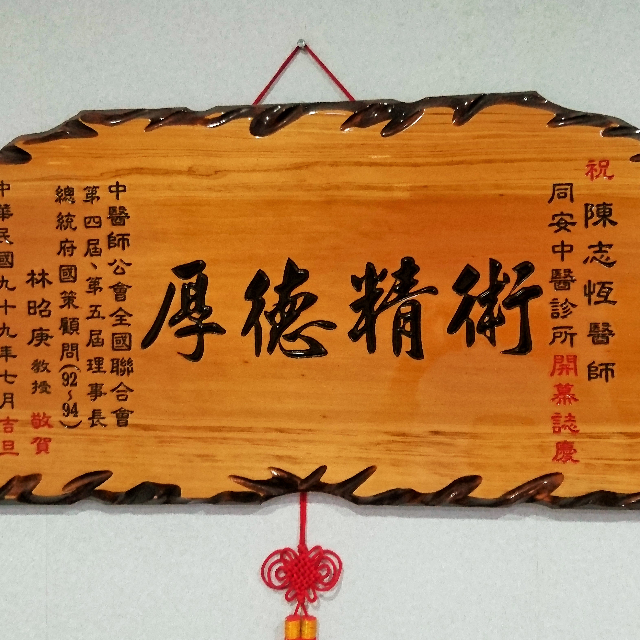 祝
陳志恆醫師
同安中醫診所開幕誌慶
術精德厚
中醫師公會全國聯合會
第四屆、第五屆理事長
總統府國策顧問(92~94)
林昭庚教授 敬賀
中華民國九十九年七月吉旦